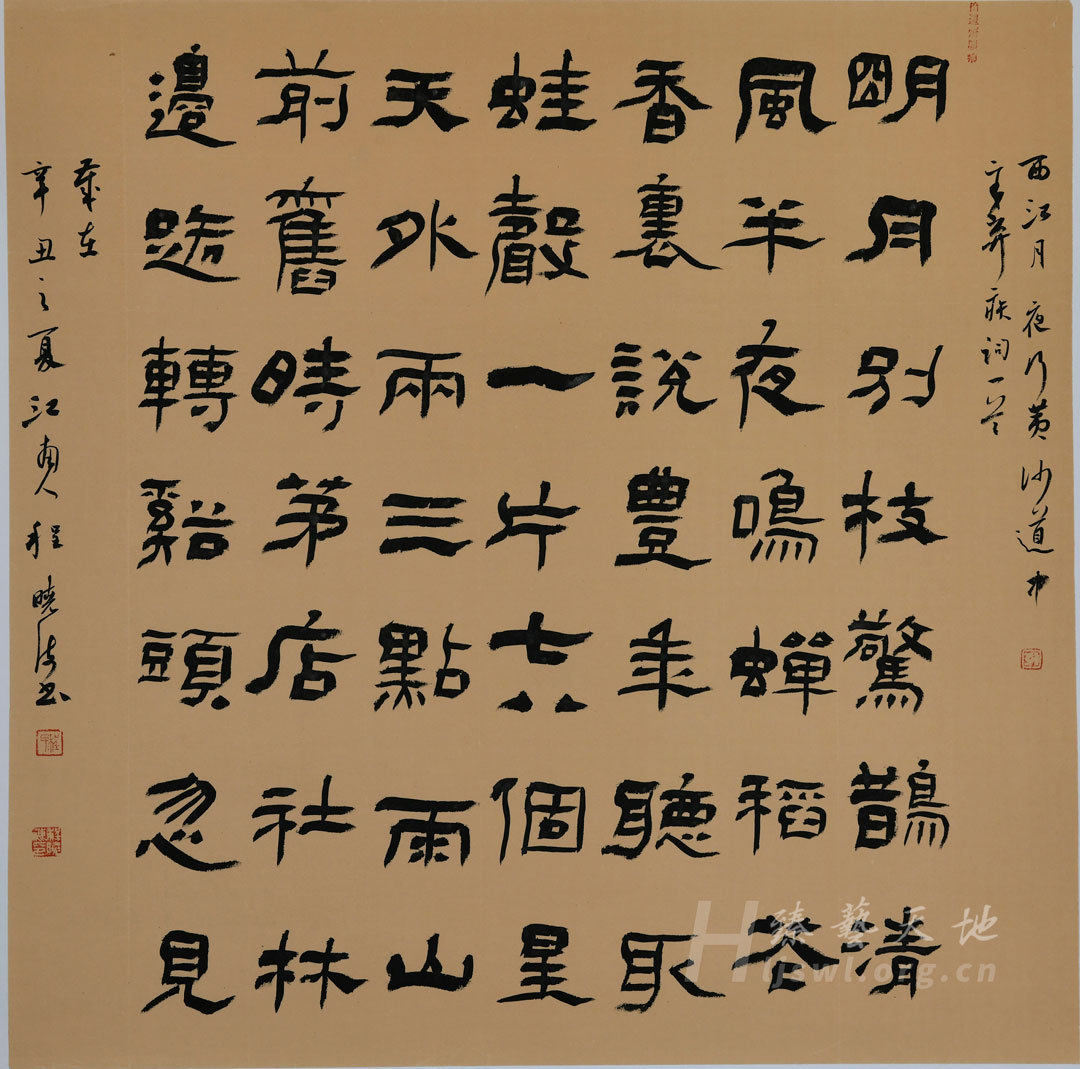 西江月 夜行黃沙道中
辛棄疾詞一首
明月別枝驚鵲清
風半夜鳴蟬稻花
香裏說豐年聽取
蛙聲一片七八個星
天外兩三點雨山
前舊時茅店社林
邊路轉谿頭忽見
歲在
辛丑之夏江南人程曉書
臻藝天地
Hljswl.org.cn